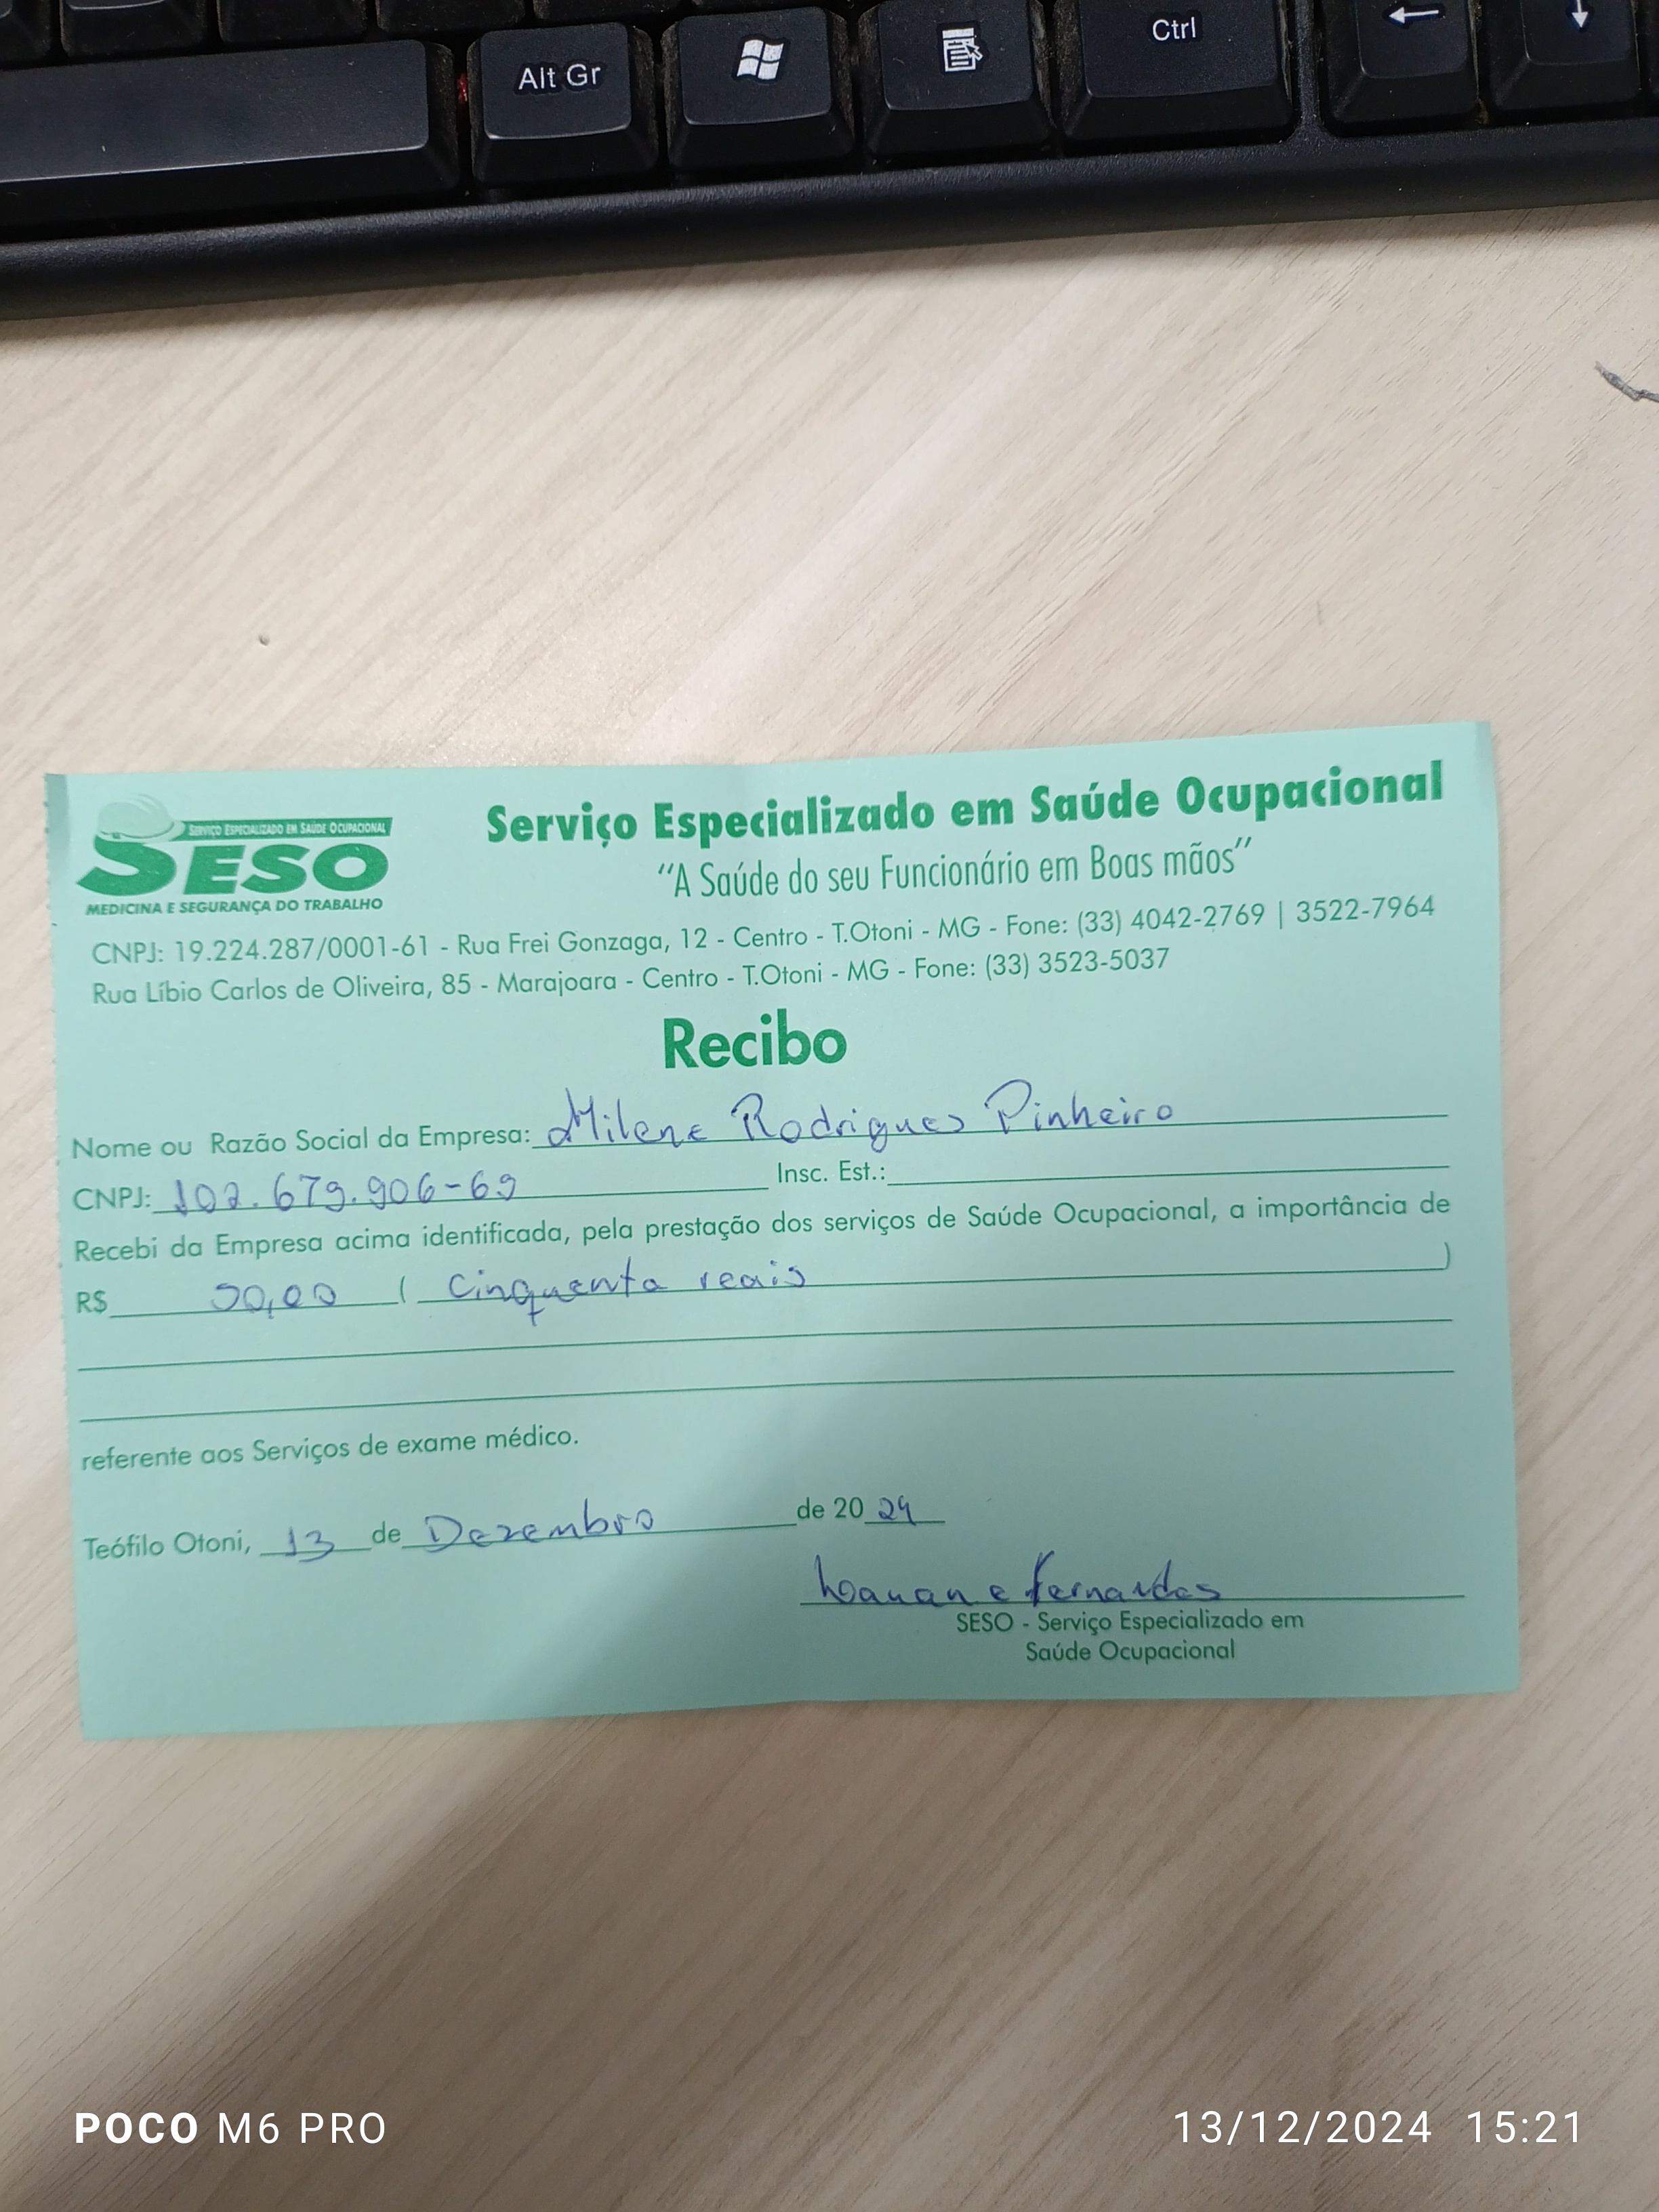 Alt Gr
Ctrl
SERVIÇO ESPECIALIZADO EM SAÚDE OCUPACIONAL
SESO
MEDICINA E SEGURANÇA DO TRABALHO
Serviço Especializado em Saúde Ocupacional
"A Saúde do seu Funcionário em Boas mãos"
CNPJ: 19.224.287/0001-61 - Rua Frei Gonzaga, 12 - Centro - T.Otoni - MG - Fone: (33) 4042-2769 | 3522-7964
Rua Líbio Carlos de Oliveira, 85 - Marajoara - Centro - T.Otoni - MG - Fone: (33) 3523-5037
Recibo
Nome ou Razão Social da Empresa: Milene Rodrigues Pinheiro
CNPJ: 102.679.906-69 Insc. Est.:
Recebi da Empresa acima identificada, pela prestação dos serviços de Saúde Ocupacional, a importância de
R$ 50,00 ( Cinquenta reais )
referente aos Serviços de exame médico.
Teófilo Otoni, 13 de Dezembro de 2024
Fernandes
SESO - Serviço Especializado em
Saúde Ocupacional
POCO M6 PRO
13/12/2024 15:21